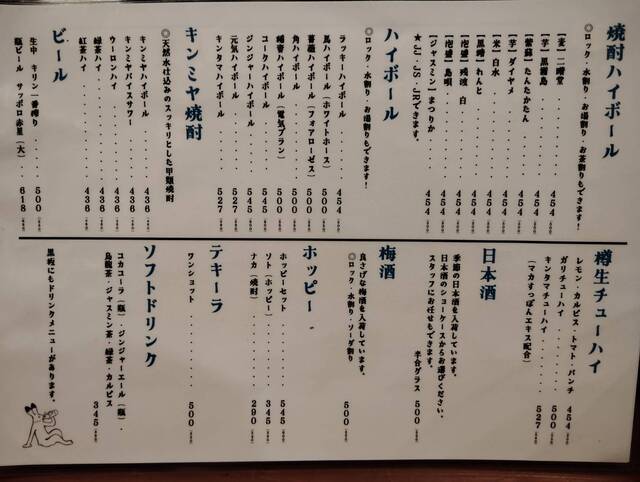 焼酎ハイボール
◎ロック・水割り・お湯割り・お茶割りもできます!
【麦】二階堂 454
【芋】黒霧島 454
【紫蘇】たんたかたん 454
【芋】ダイヤメ 454
【米】白水 454
【黒糖】れんと 454
【泡盛】残波 白 454
【泡盛】島唄 454
【ジャスミン】まつりか 454
★JJ・JS・JRできます。
ハイボール
◎ロック・水割り・お湯割りもできます!
ラッキーハイボール 454
馬ハイボール(ホワイトホース) 500
薔薇ハイボール(フォアローゼス) 500
角ハイボール 500
樽香ハイボール(電気ブラン) 500
コークハイボール 545
ジンジャーハイボール 545
元気ハイボール 527
キンタマハイボール 527
キンミヤ焼酎
◎天然水仕込みのスッキリとした甲類焼酎
キンミヤハイボール 436
キンミヤバイスサワー 436
ウーロンハイ 436
緑茶ハイ 436
紅茶ハイ 436
ビール
生中 キリン一番搾り 500
瓶ビール サッポロ赤星(大) 618
樽生チューハイ
レモン・カルピス・トマト・パンチ 454
ガリチューハイ 500
キンタマチューハイ 527
(マカすっぽんエキス配合)
日本酒
季節の日本酒を入荷しています。
日本酒のショーケースからお選びください。
スタッフにお任せもできます。
半合グラス 500
梅酒
良さげな梅酒を入荷しています。
◎ロック・水割り・ソーダ割り
500
ホッピー
ホッピーセット 545
ソト(ホッピー) 345
ナカ(焼酎) 290
テキーラ
ワンショット 500
ソフトドリンク
コカコーラ(瓶)・ジンジャーエール(瓶)・
烏龍茶・ジャスミン茶・緑茶・カルピス
345
黒板にもドリンクメニューがあります。